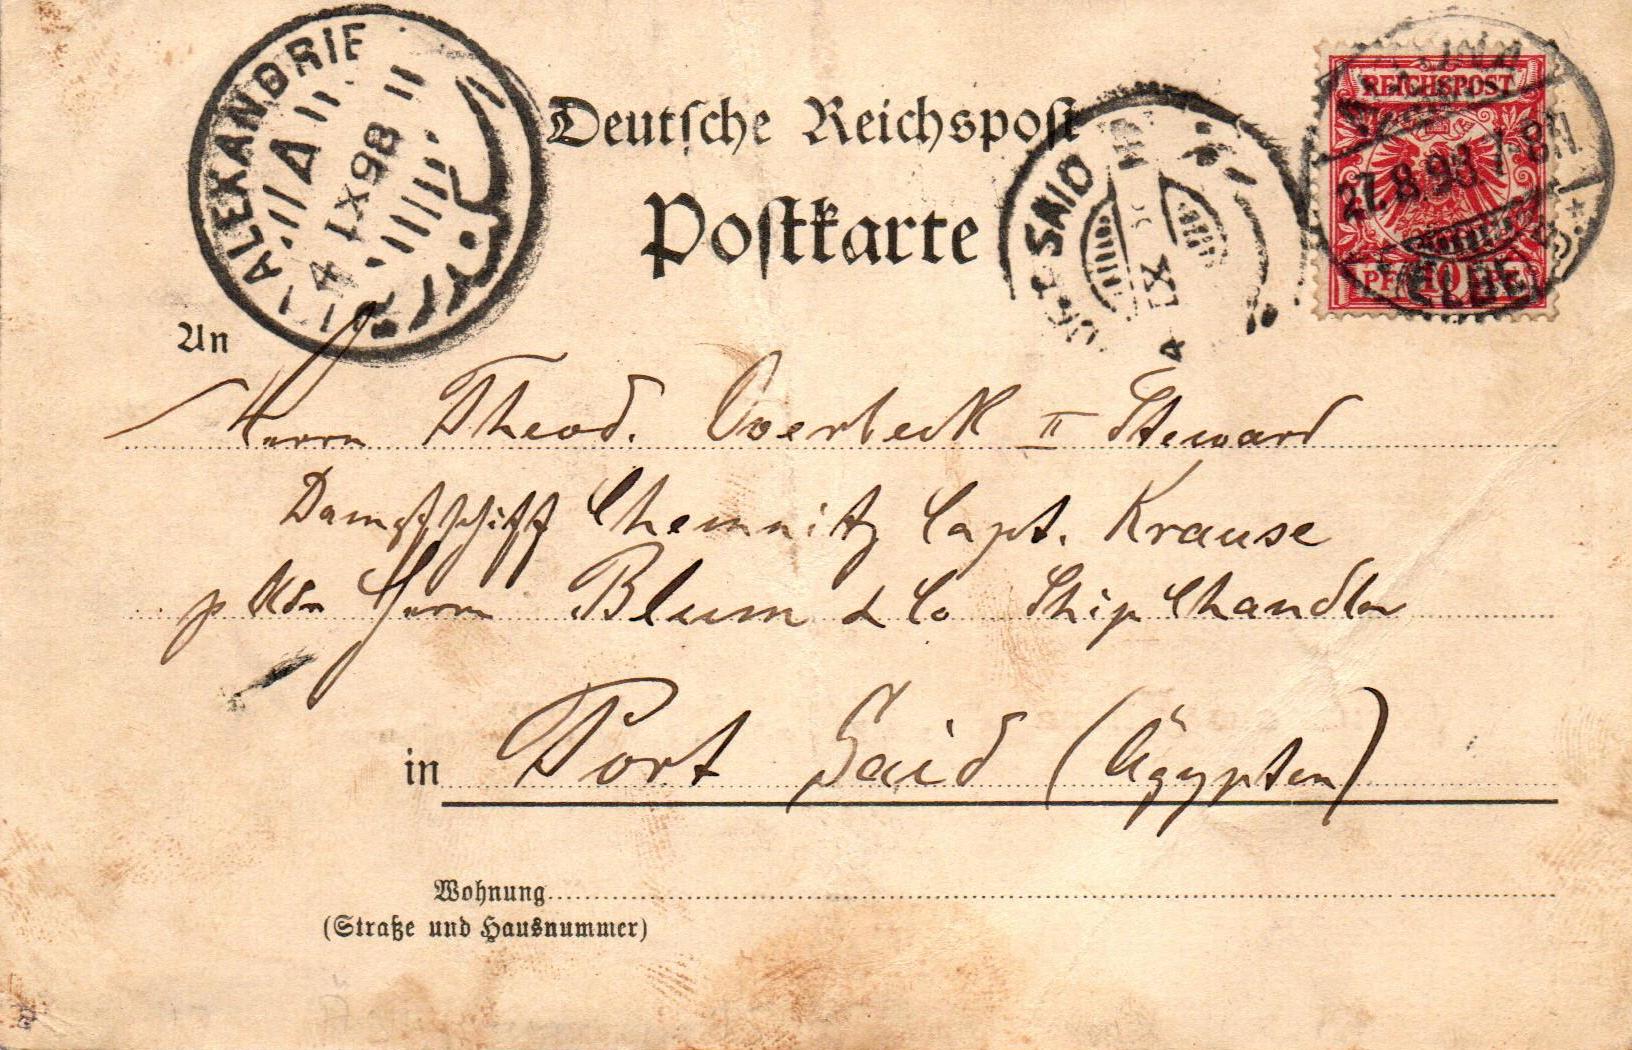 ALEXANDRIE
4 IX 98
Deutsche Reichspost
Postkarte
IX
REICHSPOST
27.8.98 7-8N
PF 10 PF
(ELBE)
An
Herrn Theod. Overbeck II Steward
Dampfschiff Chemnitz Capt. Krause
Herrn Blum & Co Ship Chandler
in Port Said (Ägypten)
Wohnung
(Straße und Hausnummer)